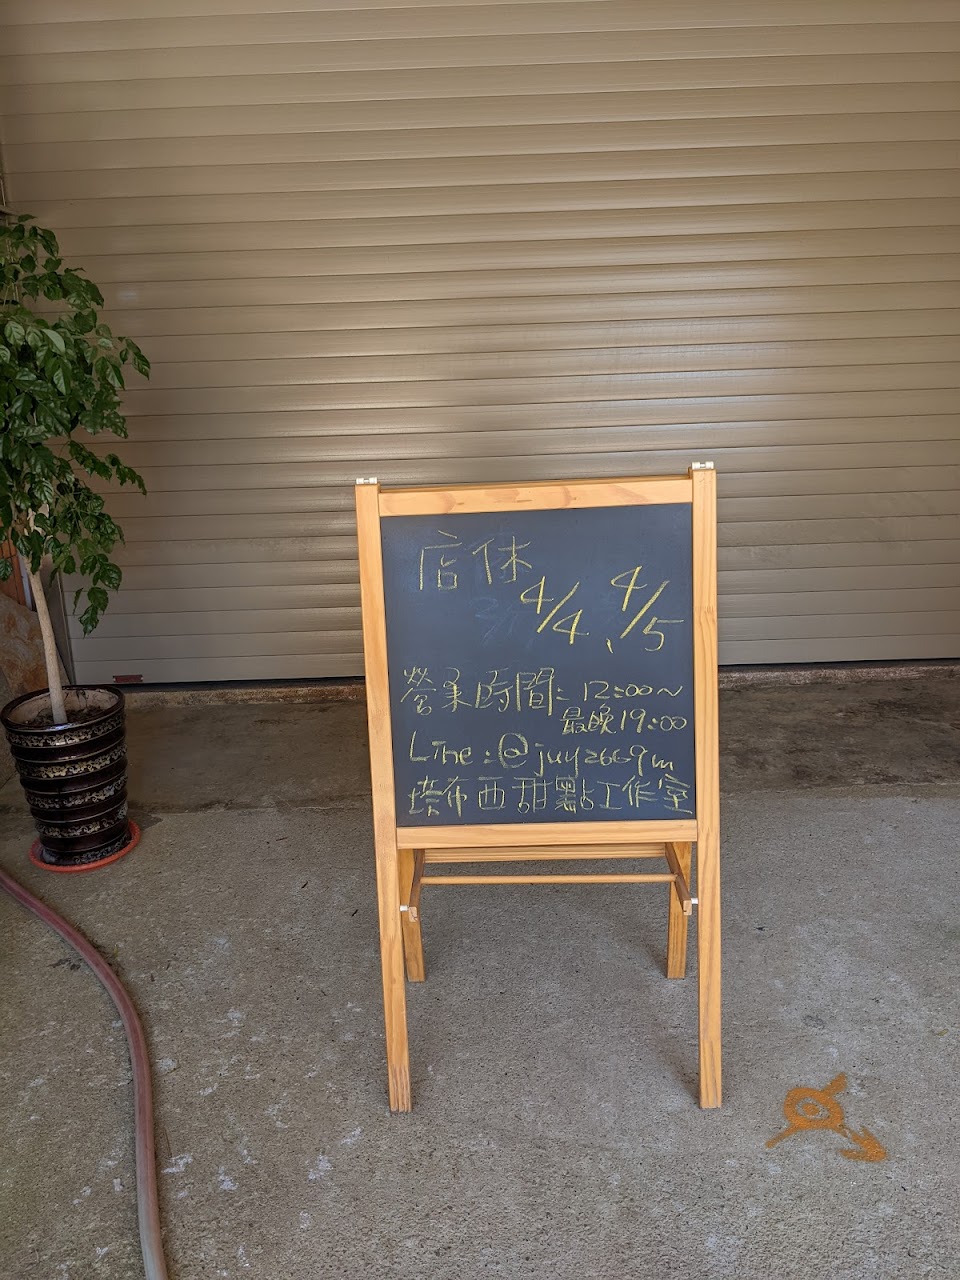 店休
4/4、4/5
營業時間：12:00～
最晚19:00
Line：@juy2669m
塔布西甜點工作室